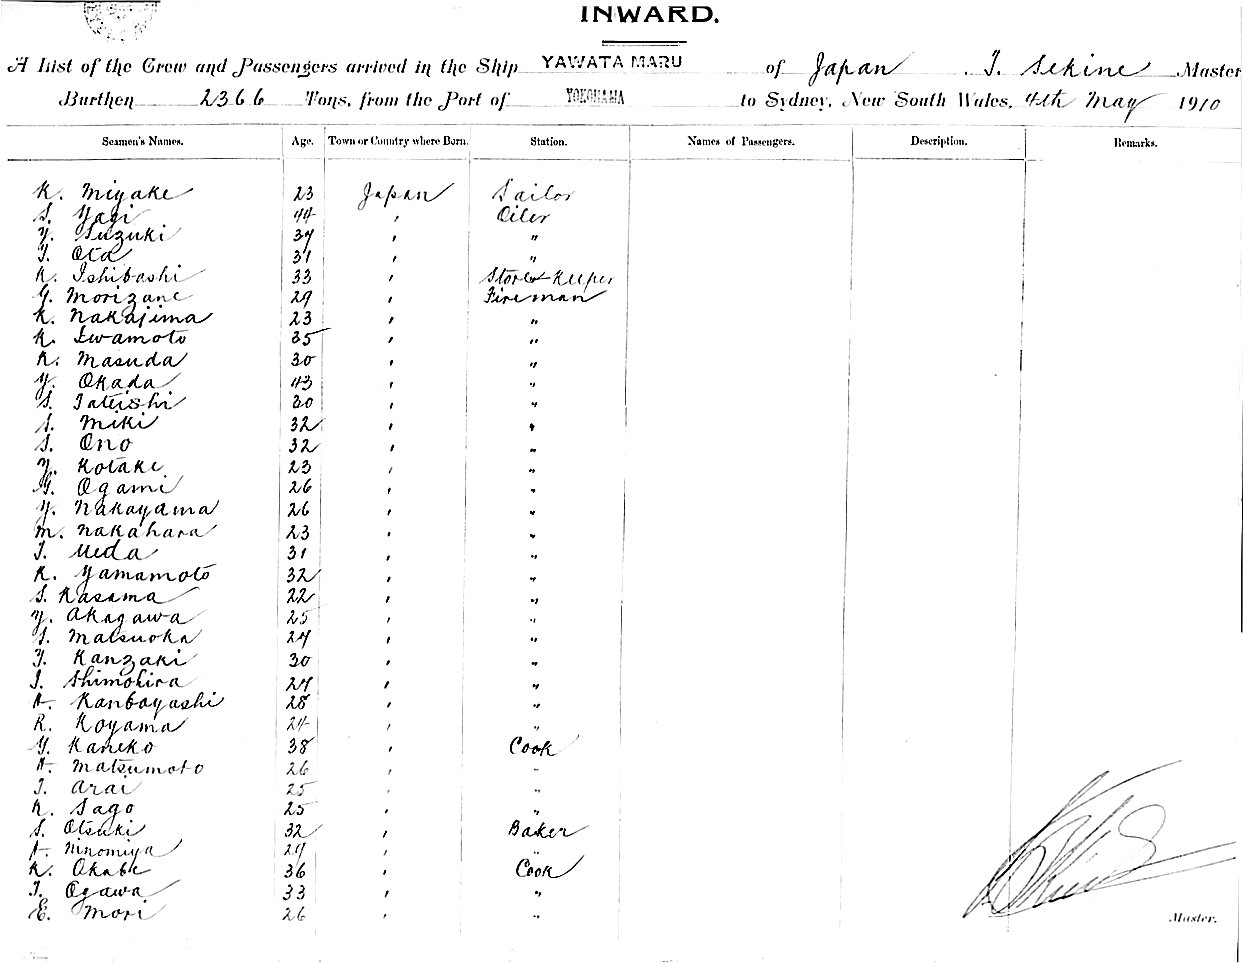 INWARD.
A List of the Crew and Passengers arrived in the Ship YAWATA MARU of Japan . T. Sekine Master
Burthen 2366 Tons, from the Port of YOKOHAMA to Sydney, New South Wales, 4th May 1910
Seamen's Names. Age. Town or Country where Born. Station. Names of Passengers. Description. Remarks.
K. Miyake 23 Japan Sailor
S. Yagi 44 " Oiler
Y. Suzuki 37 " "
T. Ota 31 " "
K. Ishibashi 33 " Store Keeper
G. Morizane 29 " Fireman
K. Nakajima 23 " "
K. Iwamoto 35 " "
K. Masuda 30 " "
Y. Okada 43 " "
S. Tateishi 30 " "
S. Miki 32 " "
S. Ono 32 " "
Y. Kotake 23 " "
G. Ogami 26 " "
Y. Nakayama 26 " "
M. Nakahara 23 " "
T. Ueda 31 " "
K. Yamamoto 32 " "
S. Kasama 22 " "
Y. Akagawa 25 " "
S. Matsuoka 27 " "
Y. Kanzaki 30 " "
I. Shimohira 27 " "
H. Kanbayashi 28 " "
R. Koyama 24 " "
Y. Kaneko 38 " Cook
H. Matsumoto 26 " "
T. Arai 25 " "
K. Sago 25 " "
S. Otsuki 32 " Baker
H. Ninomiya 27 " "
K. Okabe 36 " Cook
T. Ogawa 33 " "
E. Mori 26 " "
Master.